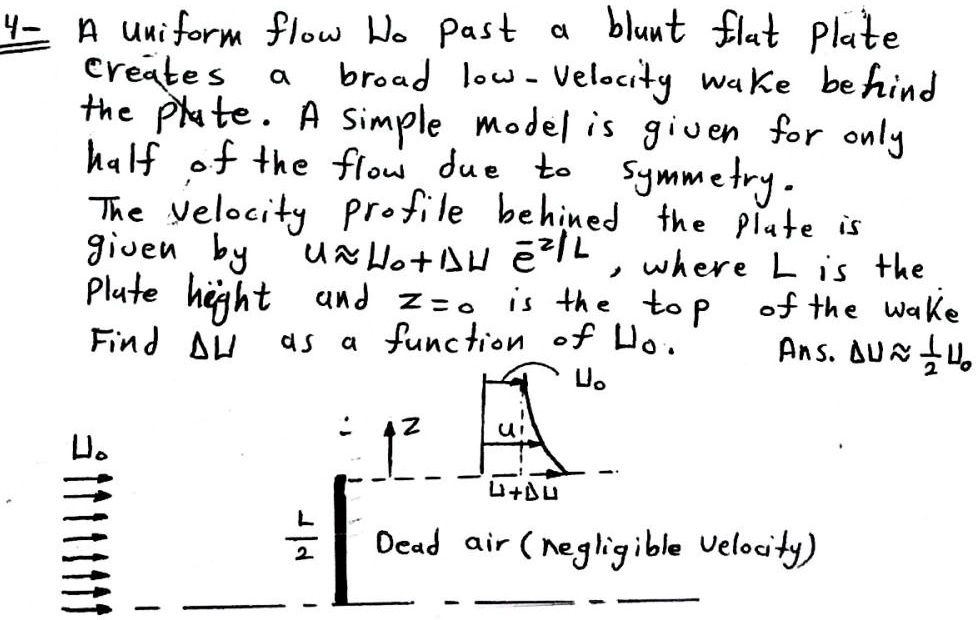 4- A uniform flow U₀ past a blunt flat plate
creates a broad low-velocity wake behind
the plate. A simple model is given for only
half of the flow due to symmetry.
The velocity profile behined the plate is
given by u≈U₀+ΔU e⁻ᶻ/ᴸ, where L is the
Plate height and z=0 is the top of the wake
Find ΔU as a function of U₀. Ans. ΔU≈½U₀
U₀
z
U₀
u
U+ΔU
L/2
Dead air (negligible velocity)